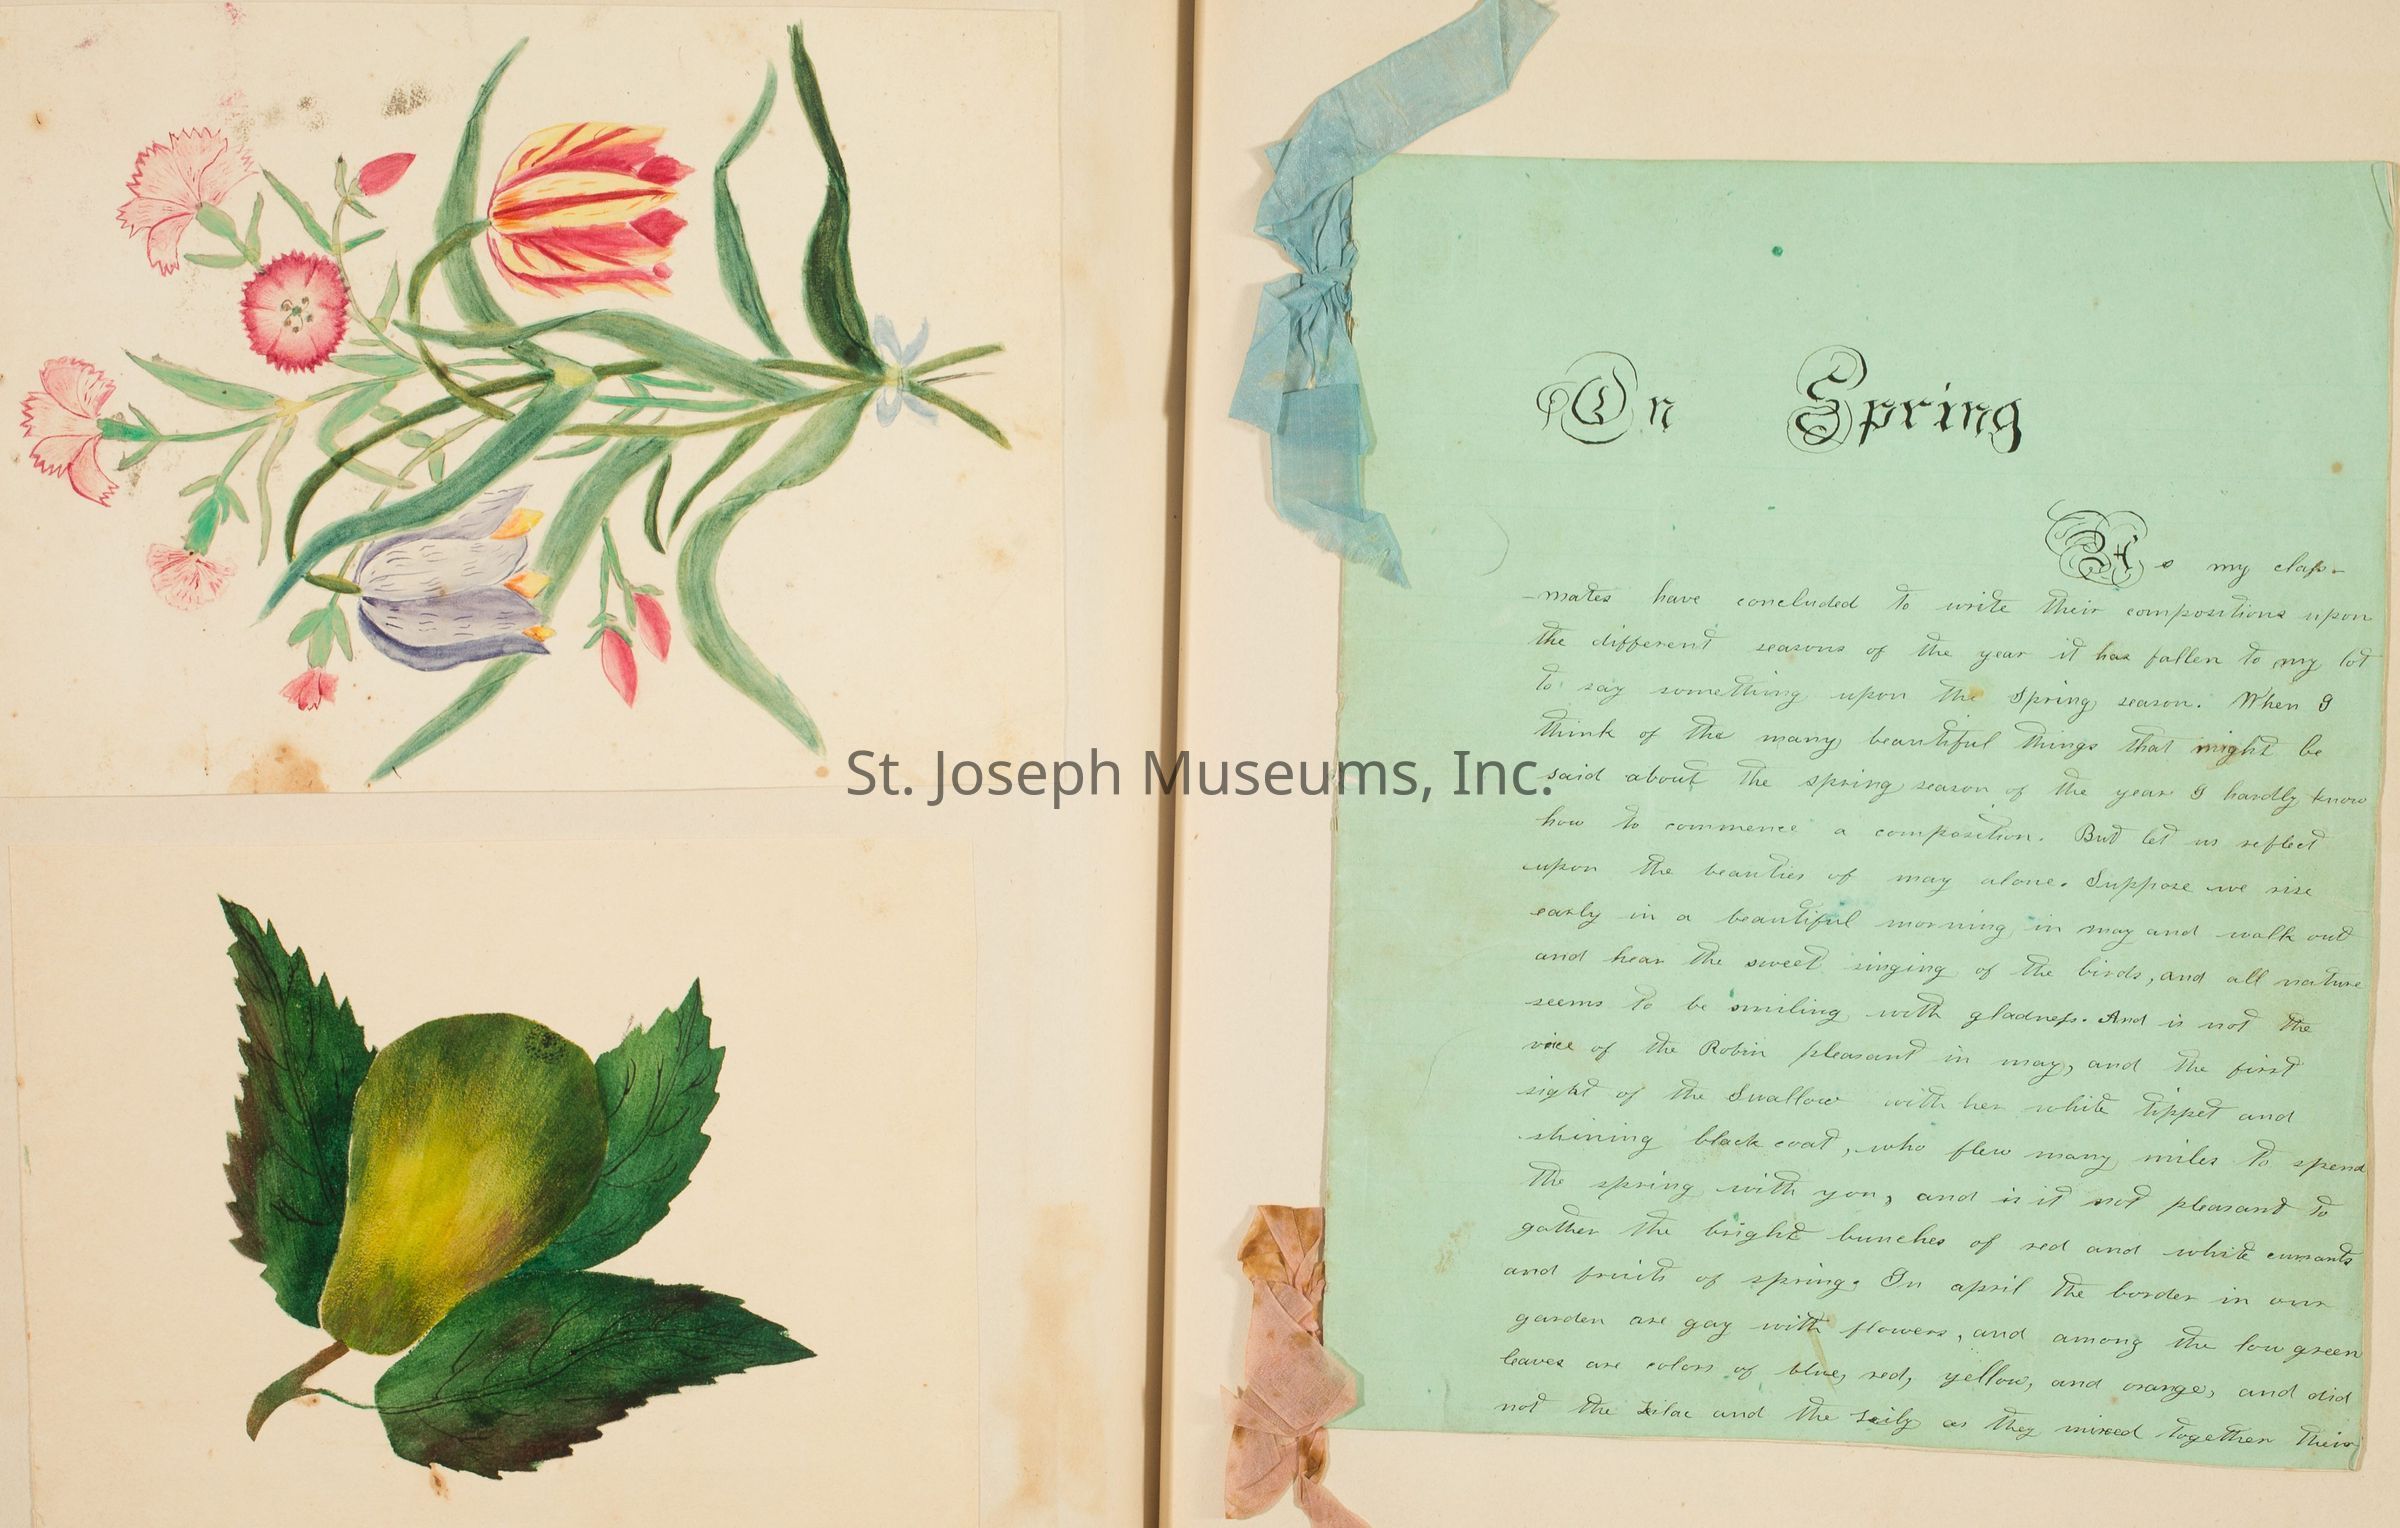 On Spring
As my class-
-mates have concluded to write their compositions upon
the different seasons of the year it has fallen to my lot
to say something upon the Spring season. When I
think of the many beautiful things that might be
said about the spring season of the year I hardly know
how to commence a composition. But let us reflect
upon the beauties of may alone. Suppose we rise
early in a beautiful morning in may and walk out
and hear the sweet singing of the birds, and all nature
seems to be smiling with gladness. And is not the
voice of the Robin pleasant in may, and the first
sight of the Swallow with her white tippet and
shining black coat, who flew many miles to spend
the spring with you, and is it not pleasant to
gather the bright bunches of red and white currants
and fruits of spring. In april the border in our
garden are gay with flowers, and among the low green
leaves are colors of blue, red, yellow, and orange, and did
not the Lilac and the Lily as they mixed together their
St. Joseph Museums, Inc.